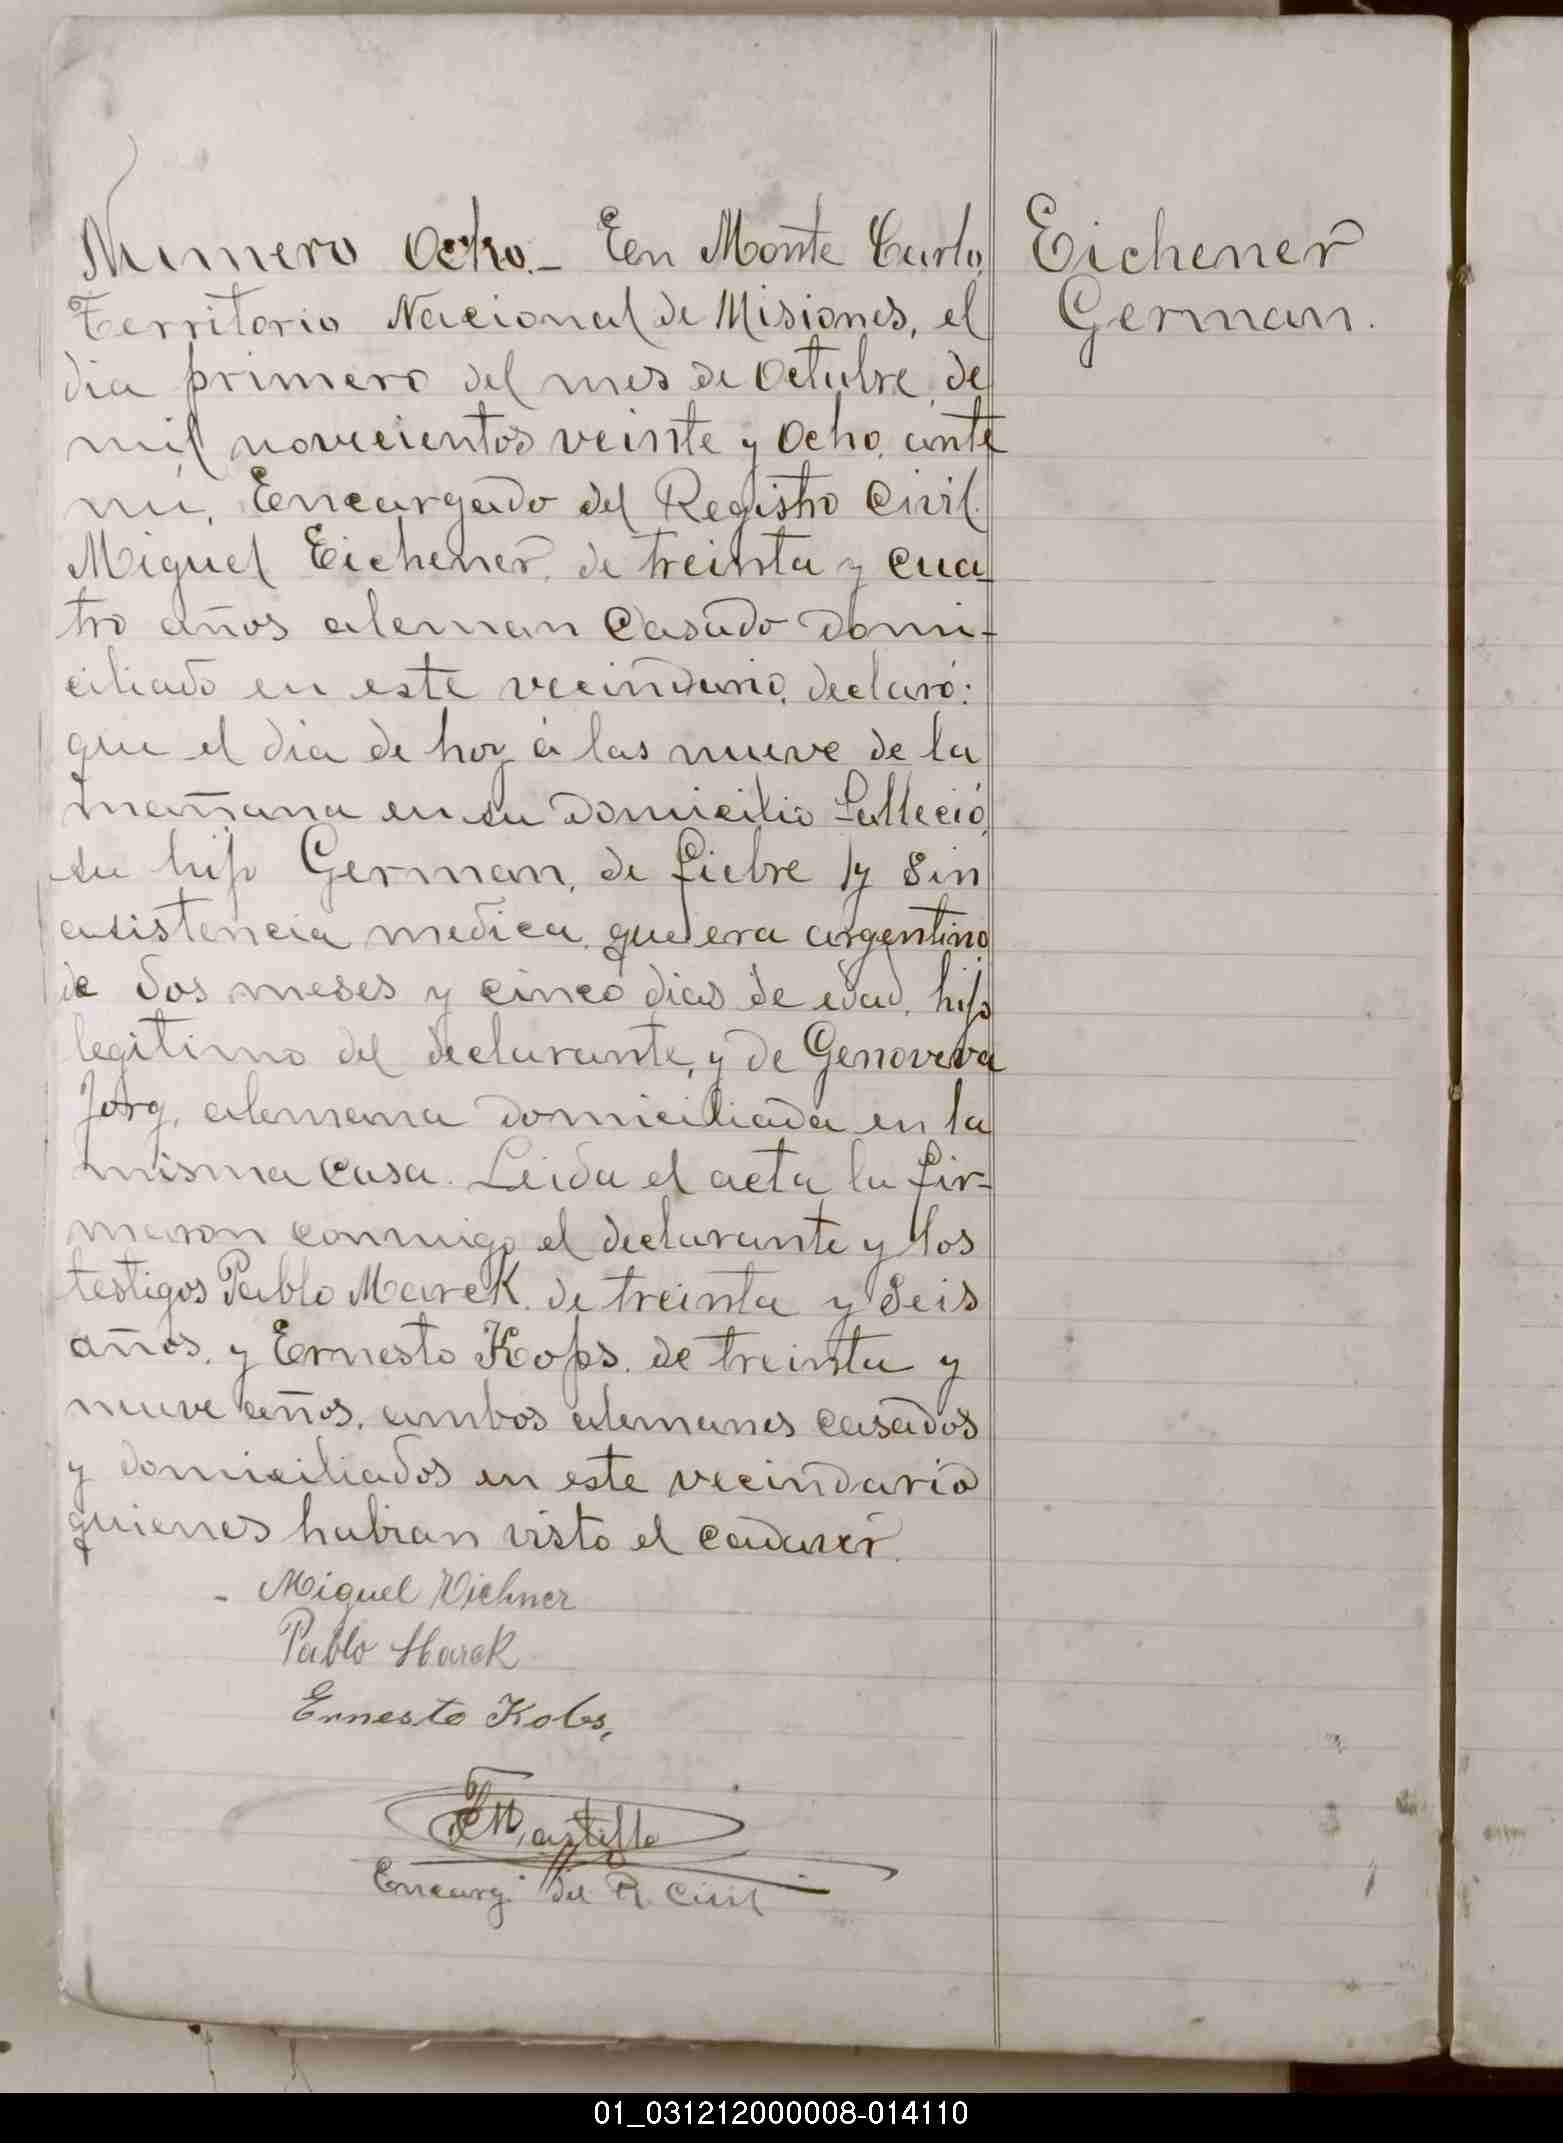 Numero Ocho.- En Monte Carlo,
Territorio Nacional de Misiones, el
dia primero del mes de Octubre, de
mil novecientos veinte y Ocho, ante
mi, Encargado del Registro Civil.
Miguel Eichener, de treinta y cua-
tro años aleman Casado domi-
ciliado en este vecindario, declaró:
que el dia de hoy á las nueve de la
mañana en su domicilio falleció,
su hijo German, de fiebre y sin
asistencia medica, que era argentino
de dos meses y cinco dias de edad, hijo
legitimo del declarante, y de Genoveva
Jorg, alemana domiciliada en la
misma casa. Leida el acta, la fir-
maron conmigo el declarante y los
testigos Pablo Marek, de treinta y Seis
años, y Ernesto Kops, de treinta y
nueve años, ambos alemanes casados
y domiciliados en este vecindario
quienes habian visto el cadaver.
- Miguel Eichner
Pablo Marek
Ernesto Kobs,
Castillo
Encarg. del R. Civil
Eichener
German.
01_031212000008-014110